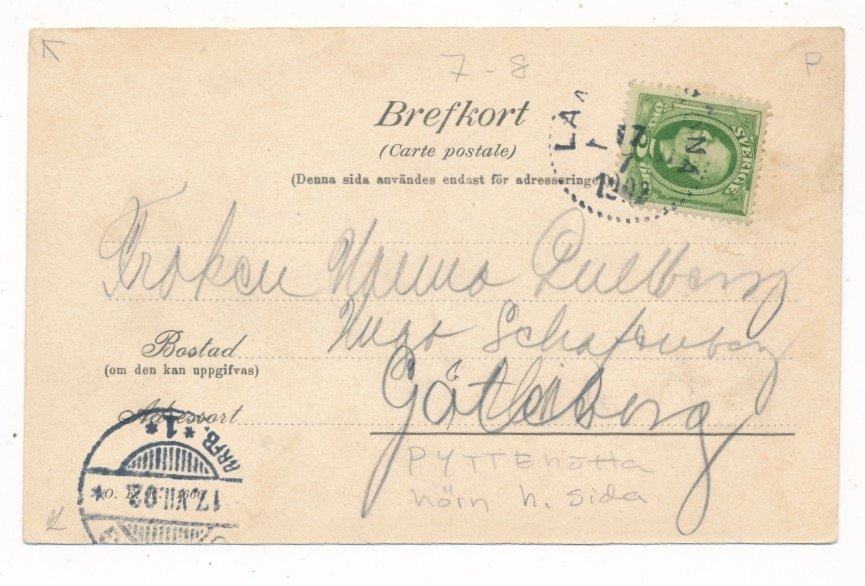 7-8
P
Brefkort
(Carte postale)
(Denna sida användes endast för adresseringen.)
LA NA
17
7
1902
SVERIGE
Fröken Hanna
Hugo
Göteborg
Bostad
(om den kan uppgifvas)
Adressort
PYTTEhotta
hörn h. sida
*1*
17.VII.02